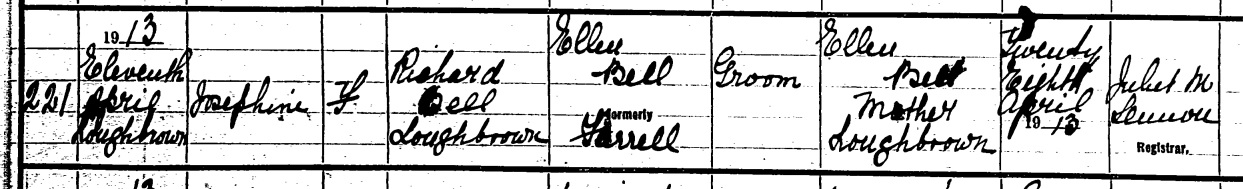 221
1913
Eleventh
April
Loughbrown
Josephine
F
Richard
Bell
Loughbrown
Ellen
Bell
formerly
Farrell
Groom
Ellen
Bell
Mother
Loughbrown
Twenty
Eighth
April
1913
Juliet M
Lennon
Registrar.